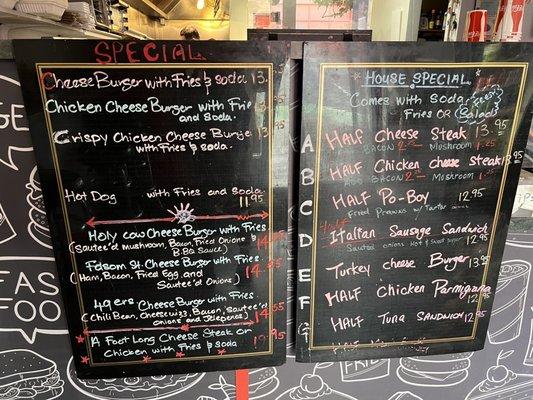 SPECIAL
Cheese Burger with Fries & soda 13.
Chicken Cheese Burger with Frie
and Soda. 13
Crispy Chicken Cheese Burge 13
with Fries & soda.
Hot Dog with Fries and Soda
11.95
Holy cow Cheese Burger with Fries
(Sautee'd mushroom, Bacon, Fried Onions &
B.BQ Sauce) 14.
Folsom St. Cheese Burger with Fries
(Ham, Bacon, Fried Egg and
Sautee'd Onions) 14.25
49ers Cheese Burger with Fries
(Chili Bean, Cheese wizz, Bacon, Sautee'd
onions and Jalepenos) 14.
A Foot Long Cheese Steak or
Chicken with Fries & soda 19.
House Special
Comes with Soda
Fries OR Salad
HALF Cheese Steak 13.95
BACON 2. Mushroom 1.25
HALF Chicken cheese steak 13.95
Add BACON 2. Mushroom 1.25
HALF Po-Boy 12.95
Fried Prawns w/ Tartar
Half
Italian Sausage Sandwich
Sauteed onions Hot & Sweet 12.95
Turkey cheese Burger 12.95
HALF Chicken Parmgiana
12.95
HALF Tuna SANDWICH 12.95
A
B
C
D
E
F
G
FAS
FOO